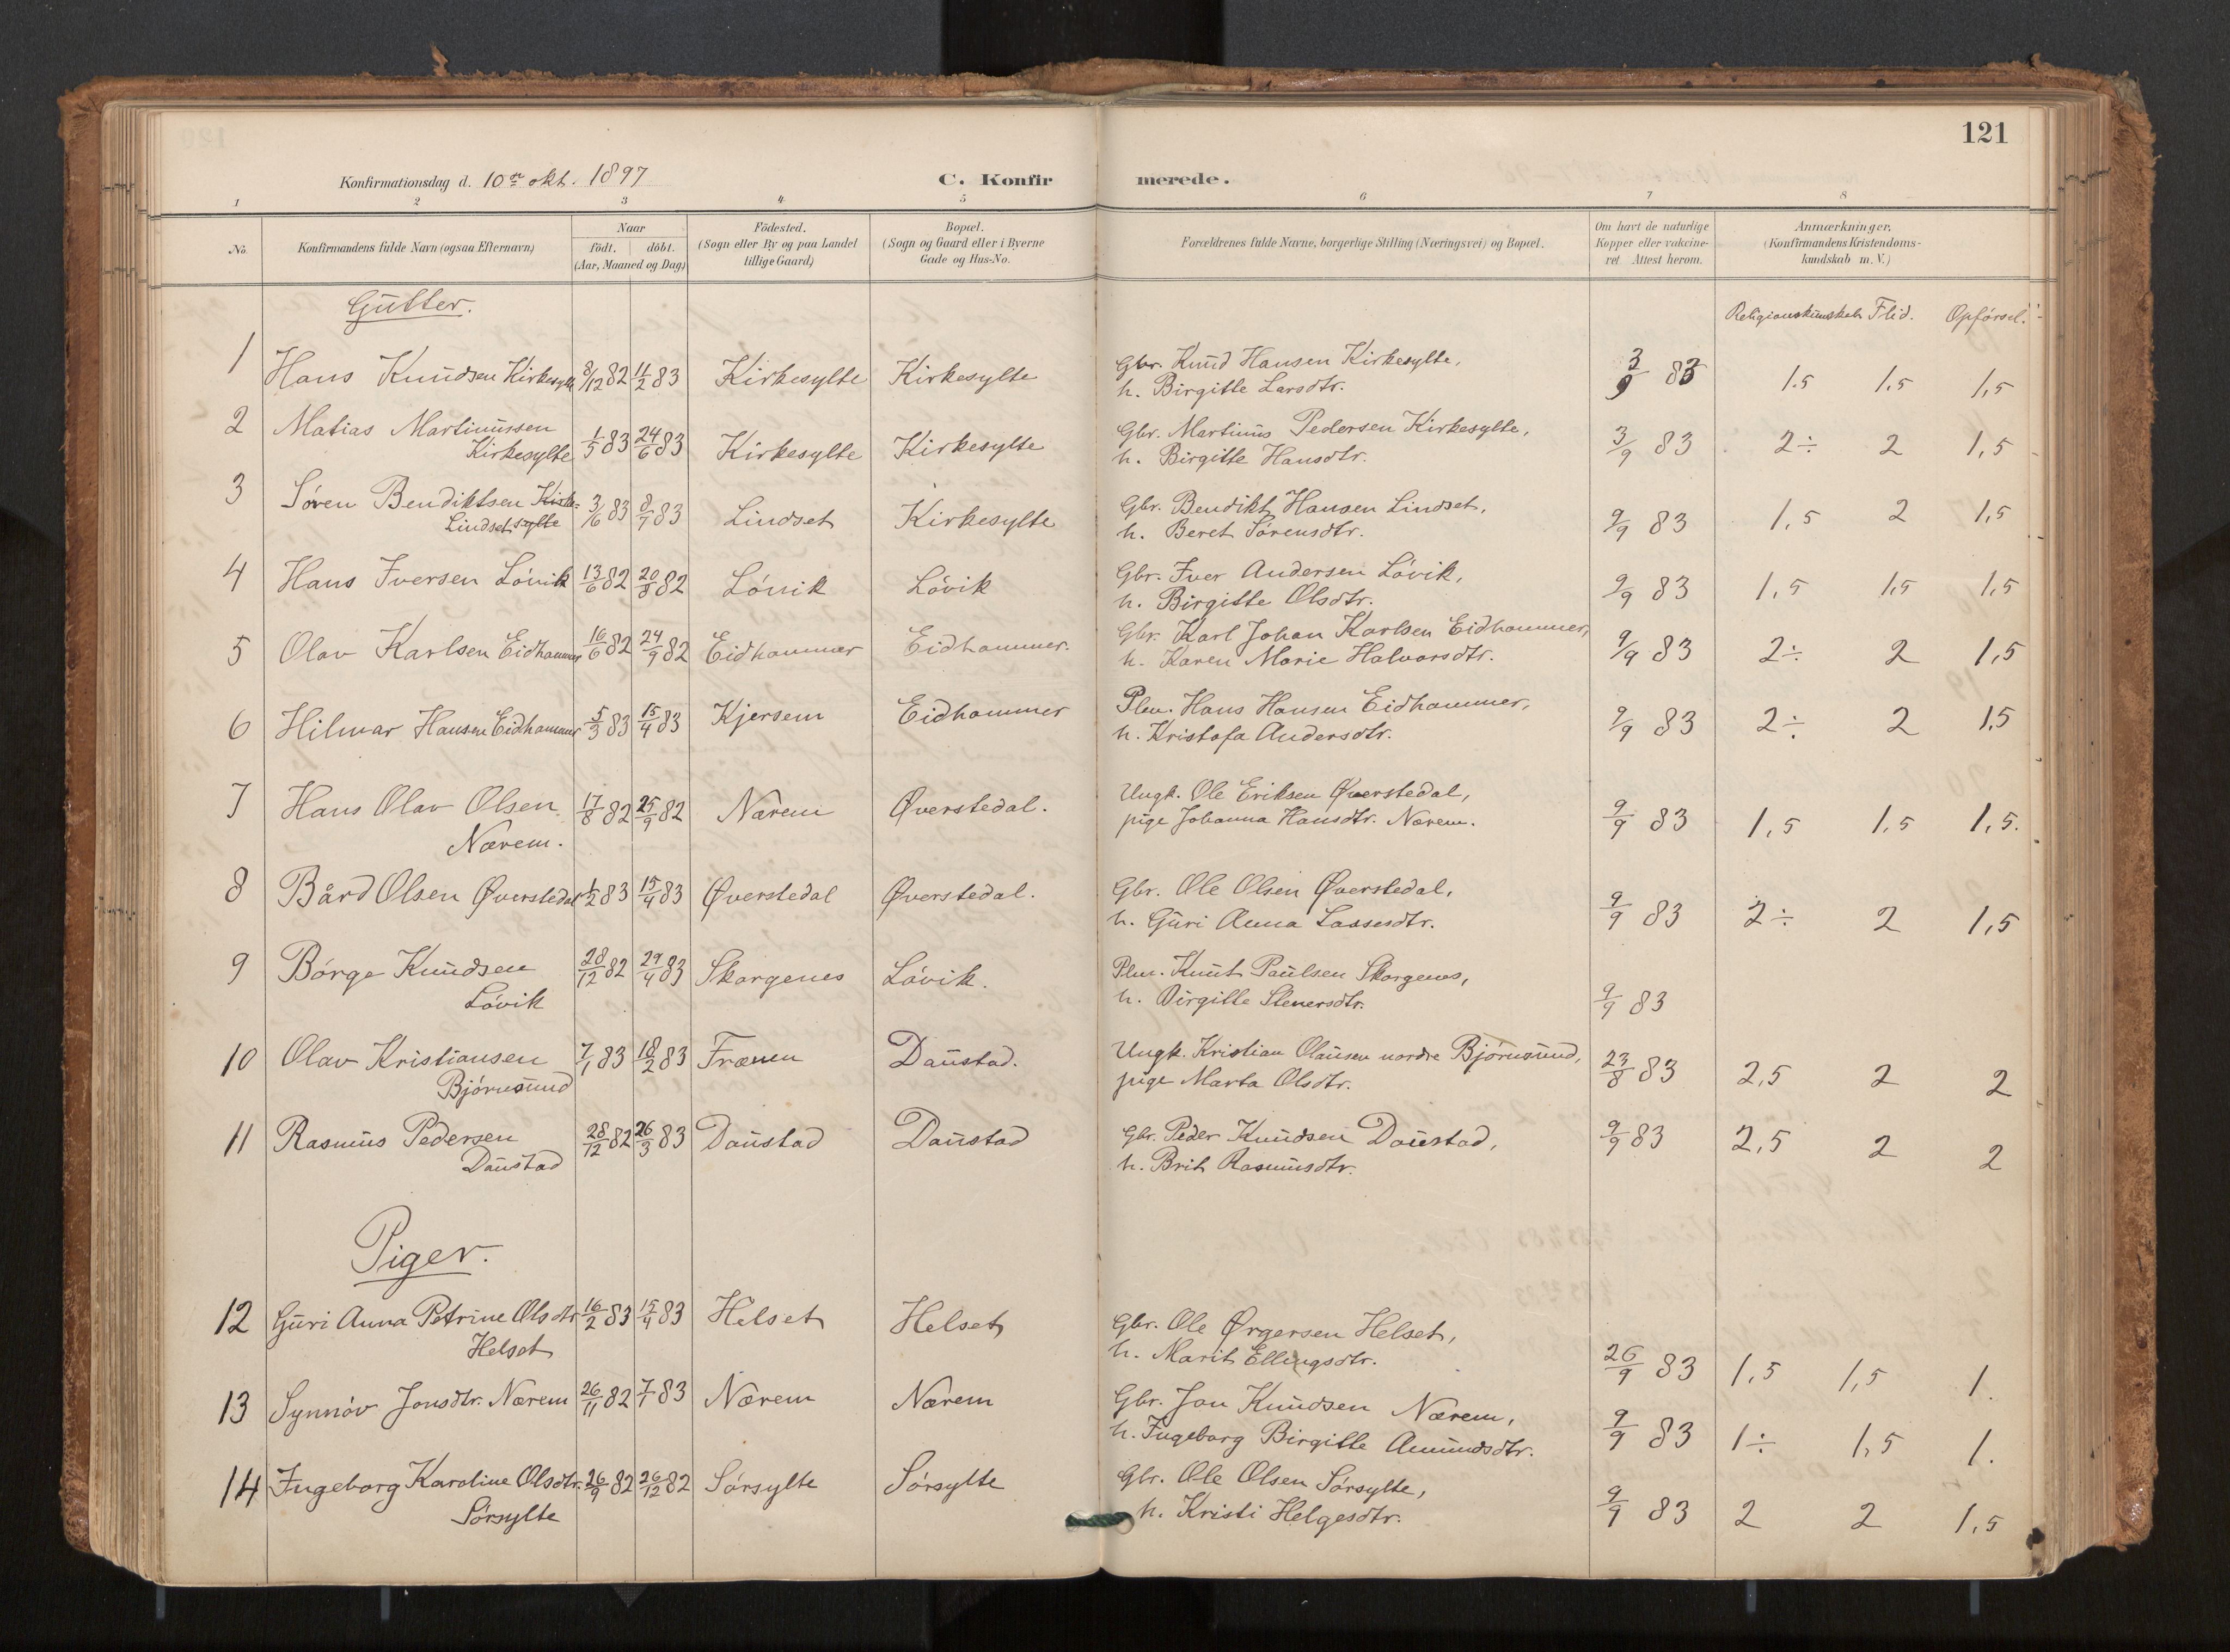 121
Konfirmationsdag d. 10de okt. 1897
C. Konfirmerede.
1 2 3 4 5 6 7 8
No. Konfirmandens fulde Navn (ogsaa Efternavn) Naar födt. döbt. (Aar, Maaned og Dag) Födested. (Sogn eller By og paa Landet tillige Gaard) Bopæl. (Sogn og Gaard eller i Byerne Gade og Hus-No. Forældrenes fulde Navne, borgerlige Stilling (Næringsvei) og Bopæl. Om havt de naturlige Kopper eller vakcineret. Attest herom. Anmærkninger. (Konfirmandens Kristendomskundskab m. V.)
Gutter.
Religionskundskab Flid. Opførsel.
1 Hans Knudsen Kirkesylte 8/12 82 11/2 83 Kirkesylte Kirkesylte Gbr. Knud Hansen Kirkesylte, 3/9 83 1.5 1.5 1,5
h. Birgitte Larsdtr.
2 Matias Martinussen 1/5 83 24/6 83 Kirkesylte Kirkesylte Gbr. Martinus Pedersen Kirkesylte, 3/9 83 2÷ 2 1,5
Kirkesylte h. Birgitte Hansdtr.
3 Søren Bendiktsen Kirke- 3/6 83 8/7 83 Lindset Kirkesylte Gbr. Bendikt Hansen Lindset, 9/9 83 1,5 2 1,5
Lindset sylte h. Beret Sørensdtr.
4 Hans Iversen Løvik 13/6 82 20/8 82 Løvik Løvik Gbr. Iver Andersen Løvik, 9/9 83 1,5 1,5 1,5
h. Birgitte Olsdtr.
5 Olav Karlsen Eidhammer 16/6 82 24/9 82 Eidhammer Eidhammer. Gbr. Karl Johan Karlsen Eidhammer, 9/9 83 2÷ 2 1,5
h. Karen Marie Halvorsdtr.
6 Hilmar Hansen Eidhammer 5/3 83 15/4 83 Kjersem Eidhammer Plm. Hans Hansen Eidhammer, 9/9 83 2÷ 2 1,5
h. Kristofa Andersdtr.
7 Hans Olav Olsen 17/8 82 25/9 82 Nærem Øverstedal. Ungk. Ole Eriksen Øverstedal, 9/9 83 1,5 1,5 1,5.
Nærem. pige Johanna Hansdtr. Nærem.
8 Bård Olsen Øverstedal 1/2 83 15/4 83 Øverstedal Øverstedal. Gbr. Ole Olsen Øverstedal, 9/9 83 2÷ 2 1,5
h. Guri Anna Lassesdtr.
9 Børge Knudsen 28/12 82 29/4 83 Skorgenes Løvik. Plm. Knut Paulsen Skorgenes, 9/9 83
Løvik h. Birgitte Stenersdtr.
10 Olav Kristiansen 7/1 83 18/2 83 Frænen Daustad. Ungk. Kristian Olausen nordre Bjørnsund, 23/8 83 2,5 2 2
Bjørnsund pige Marta Olsdtr.
11 Rasmus Pedersen 28/12 82 26/3 83 Daustad Daustad Gbr. Peder Knudsen Daustad, 9/9 83 2,5 2 2
Daustad h. Brit Rasmusdtr.
Piger.
12 Guri Anna Petrine Olsdtr. 16/2 83 15/4 83 Helset Helset Gbr. Ole Ørgersen Helset, 26/9 83 1,5 1,5 1.
Helset h. Marit Ellingsdtr.
13 Synnøv Jonsdtr. Nærem 26/11 82 7/1 83 Nærem Nærem Gbr. Jon Knudsen Nærem, 9/9 83 1÷ 1,5 1.
h. Ingeborg Birgitte Amundsdtr.
14 Ingeborg Karoline Olsdtr. 26/9 82 26/12 82 Sørsylte Sørsylte Gbr. Ole Olsen Sørsylte, 9/9 83 2 2 1,5
Sørsylte h. Kristi Helgesdtr.